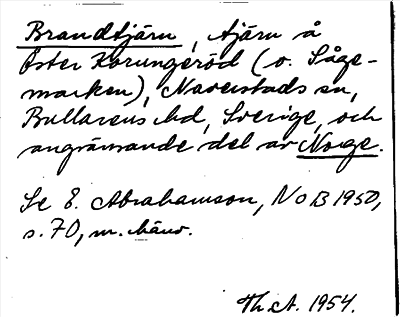 Brandtjärn, tjärn å
Öster Korungeröd (o. Såge-
marken), Naverstads sn,
Bullarens hd, Sverige, och
angränsande del av Norge.
Se E. Abrahamson, NoB 1950,
s. 70, m. hänv.
Th. A. 1954.